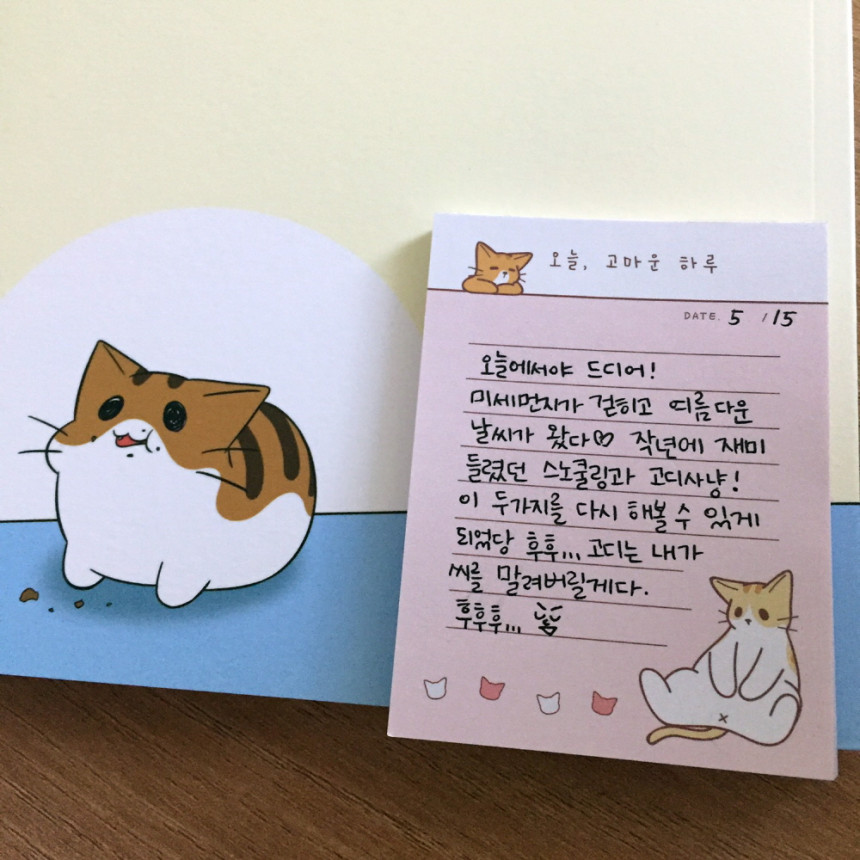 오늘, 고마운 하루
DATE. 5 / 15
오늘에서야 드디어!
미세먼지가 걷히고 여름다운
날씨가 왔다♡ 작년에 재미
들렸던 스노쿨링과 고디사냥!
이 두가지를 다시 해볼 수 있게
되었당 후후... 고디는 내가
씨를 말려버릴게다.
후후후...